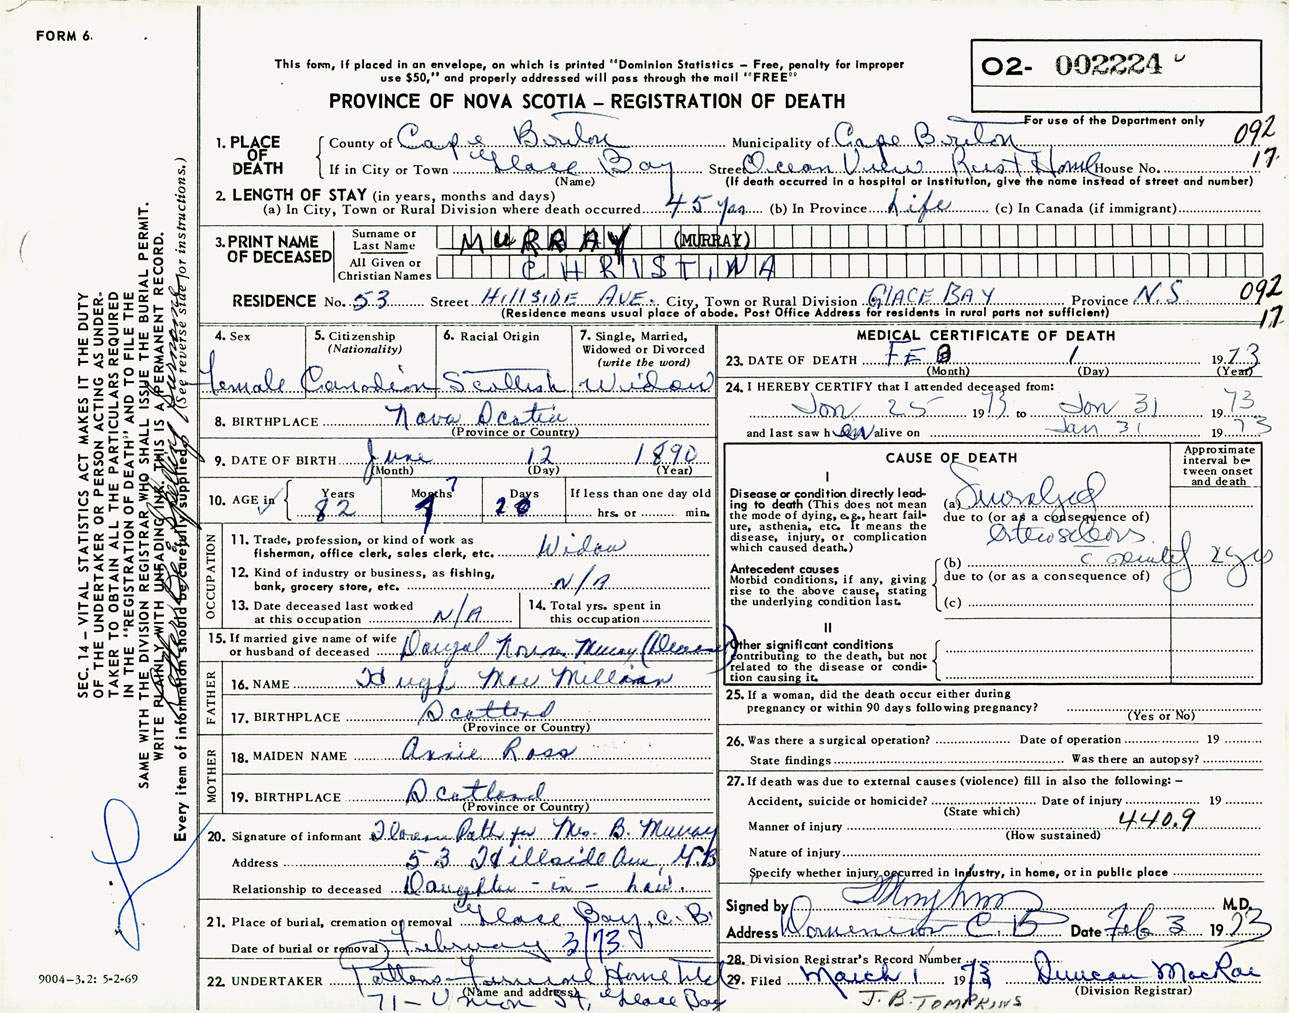 FORM 6.
This form, if placed in an envelope, on which is printed "Dominion Statistics – Free, penalty for improper
use $50," and properly addressed will pass through the mail "FREE"
PROVINCE OF NOVA SCOTIA – REGISTRATION OF DEATH
O2- 002224
For use of the Department only
1. PLACE OF DEATH County of Cape Breton Municipality of Cape Breton 092
If in City or Town Glace Bay Street Ocean View Rest Home House No. 17.
(Name) (If death occurred in a hospital or institution, give the name instead of street and number)
2. LENGTH OF STAY (in years, months and days)
(a) In City, Town or Rural Division where death occurred 45 yrs (b) In Province Life (c) In Canada (if immigrant)
3. PRINT NAME OF DECEASED
Surname or Last Name MURRAY (MURRAY)
All Given or Christian Names CHRISTINA
RESIDENCE No. 53 Street HILLSIDE AVE. City, Town or Rural Division GLACE BAY Province N.S 092
(Residence means usual place of abode. Post Office Address for residents in rural parts not sufficient) 17.
4. Sex
Female
5. Citizenship (Nationality)
Canadian
6. Racial Origin
Scottish
7. Single, Married, Widowed or Divorced (write the word)
Widow
8. BIRTHPLACE Nova Scotia
(Province or Country)
9. DATE OF BIRTH June 12 1890
(Month) (Day) (Year)
10. AGE in Years Months Days If less than one day old
82 7 20 hrs. or min.
OCCUPATION
11. Trade, profession, or kind of work as
fisherman, office clerk, sales clerk, etc. Widow
12. Kind of industry or business, as fishing,
bank, grocery store, etc. N/A
13. Date deceased last worked
at this occupation N/A
14. Total yrs. spent in
this occupation
15. If married give name of wife
or husband of deceased Dougal Murray
FATHER
16. NAME Hugh MacMillan
17. BIRTHPLACE Scotland
(Province or Country)
MOTHER
18. MAIDEN NAME Annie Ross
19. BIRTHPLACE Scotland
(Province or Country)
20. Signature of informant for Mrs. B. Murray
Address 53 Hillside Ave, G.B
Relationship to deceased Daughter-in-law.
21. Place of burial, cremation or removal Glace Bay, C.B.
Date of burial or removal February 3/73
22. UNDERTAKER Pattens Funeral Home Ltd
(Name and address)
71-Union St, Glace Bay
MEDICAL CERTIFICATE OF DEATH
23. DATE OF DEATH FEB 1 1973
(Month) (Day) (Year)
24. I HEREBY CERTIFY that I attended deceased from:
Jan 25 1973 to Jan 31 1973
and last saw her alive on Jan 31 1973
CAUSE OF DEATH
Approximate interval between onset and death
I
Disease or condition directly lead-
ing to death (This does not
mean the mode of dying, e.g., heart fail-
ure, asthenia, etc. It means the
disease, injury, or complication
which caused death.)
(a)
due to (or as a consequence of)
Antecedent causes
Morbid conditions, if any, giving
rise to the above cause, stating
the underlying condition last.
(b) 2 yrs
due to (or as a consequence of)
(c)
II
Other significant conditions
contributing to the death, but not
related to the disease or condi-
tion causing it.
25. If a woman, did the death occur either during
pregnancy or within 90 days following pregnancy?
(Yes or No)
26. Was there a surgical operation? Date of operation 19
State findings Was there an autopsy?
27. If death was due to external causes (violence) fill in also the following: –
Accident, suicide or homicide? Date of injury 19
(State which)
Manner of injury 440.9
(How sustained)
Nature of injury
Specify whether injury occurred in industry, in home, or in public place
Signed by M.D.
Address Dominion C.B Date Feb 3 1973
28. Division Registrar's Record Number
29. Filed March 1 1973 Duncan MacRae
(Division Registrar)
J.B. TOMPKINS
SEC. 14 – VITAL STATISTICS ACT MAKES IT THE DUTY
OF THE UNDERTAKER OR PERSON ACTING AS UNDER-
TAKER TO OBTAIN ALL THE PARTICULARS REQUIRED
IN THE "REGISTRATION OF DEATH" AND TO FILE THE
SAME WITH THE DIVISION REGISTRAR, WHO SHALL ISSUE THE BURIAL PERMIT.
WRITE PLAINLY WITH UNFADING INK. THIS IS A PERMANENT RECORD.
Every item of information should be carefully supplied. (See reverse side for instructions.)
9004-3.2: 5-2-69